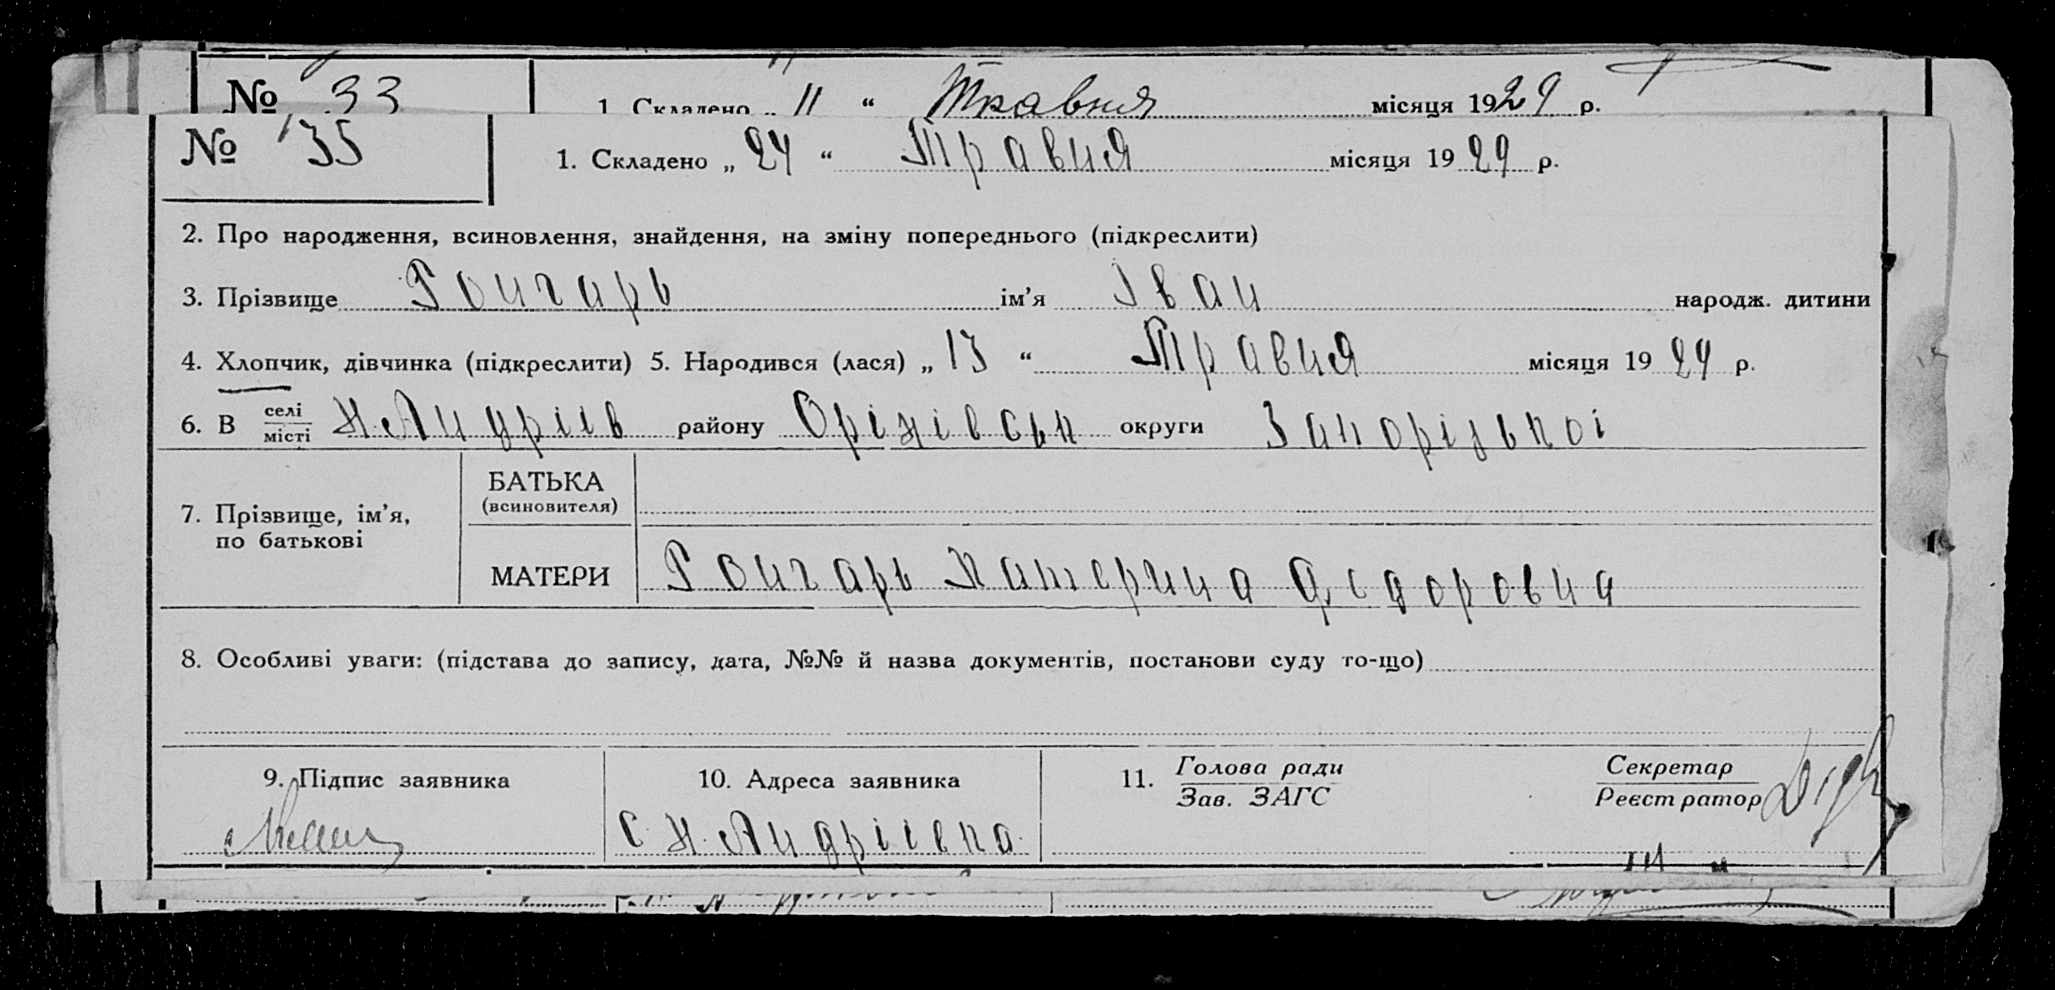 № 33 1. Складено „ 11 “ Травня місяця 1929 р.
№ 35 1. Складено „ 24 “ Травня місяця 19 29 р.
2. Про народження, всиновлення, знайдення, на зміну попереднього (підкреслити)
3. Прізвище Гончарь ім’я Іван народж. дитини
4. Хлопчик, дівчинка (підкреслити) 5. Народився (лася) „ 13 “ Травня місяця 19 29 р.
6. В селі/місті Н Андріїв району Оріхівськ округи Запорізької
7. Прізвище, ім’я, по батькові
БАТЬКА
(всиновителя)
МАТЕРИ Гончарь Катерина Федоровна
8. Особливі уваги: (підстава до запису, дата, №№ й назва документів, постанови суду то-що)
9. Підпис заявника 10. Адреса заявника 11. Голова ради/Зав. ЗАГС Секретар/Реєстратор
с Н. Андріївка